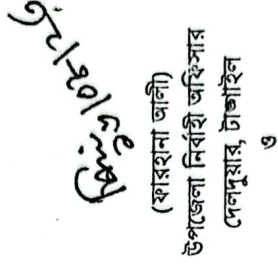 (ফারহানা আলী)
উপজেলা নির্বাহী অফিসার
দেলদুয়ার, টাঙ্গাইল
ও